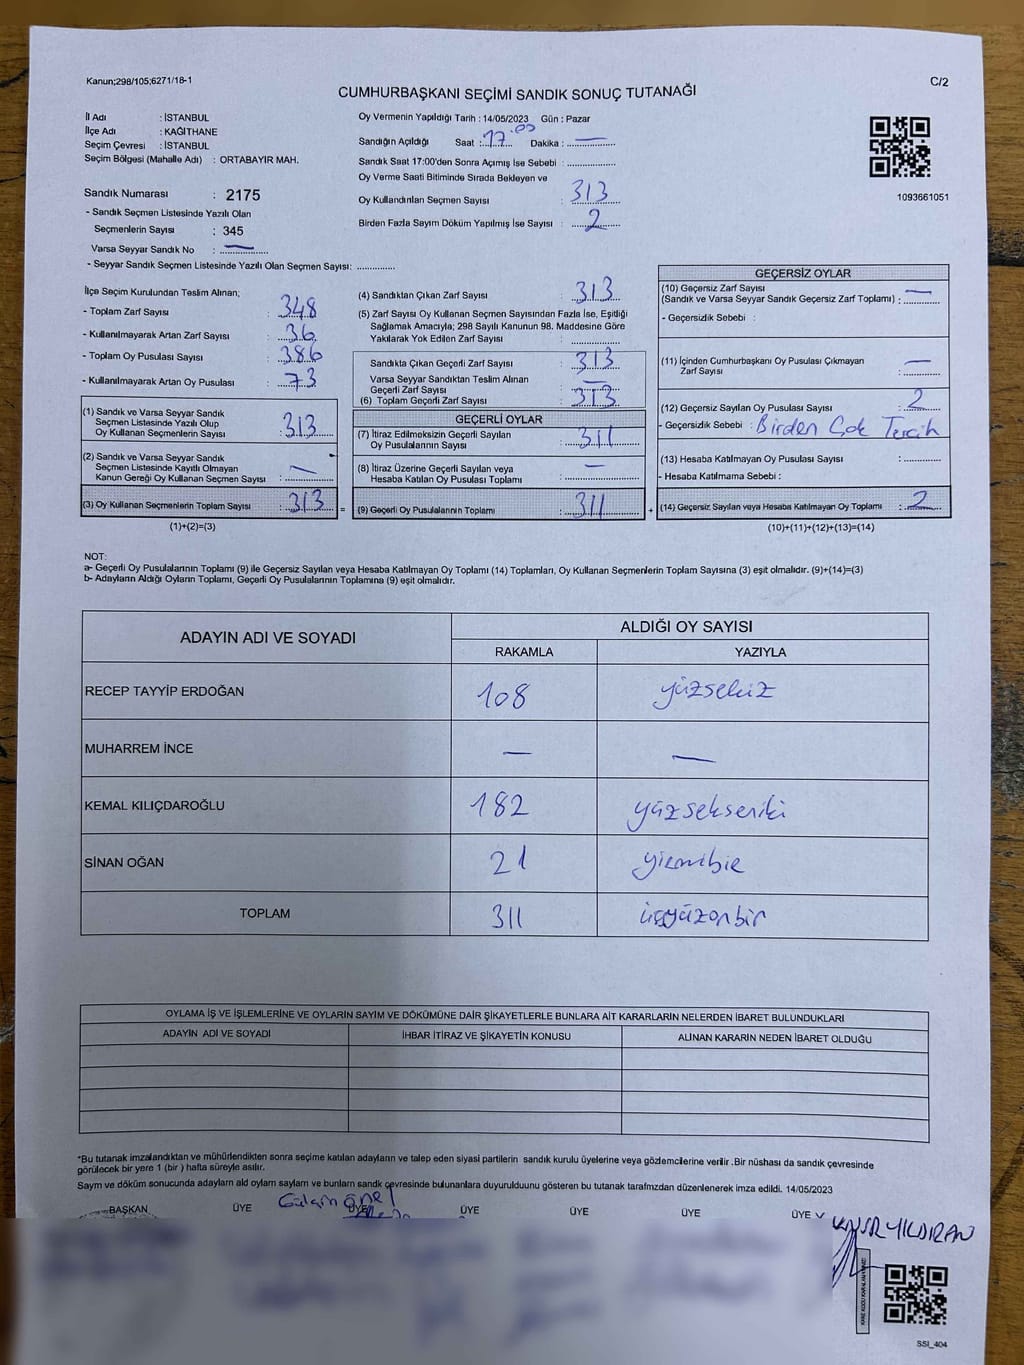 Kanun;298/105;6271/18-1
C/2
CUMHURBAŞKANI SEÇİMİ SANDIK SONUÇ TUTANAĞI
İl Adı : İSTANBUL
İlçe Adı : KAĞITHANE
Seçim Çevresi : İSTANBUL
Seçim Bölgesi (Mahalle Adı) : ORTABAYIR MAH.
Sandık Numarası : 2175
- Sandık Seçmen Listesinde Yazılı Olan
Seçmenlerin Sayısı : 345
Varsa Seyyar Sandık No : —
- Seyyar Sandık Seçmen Listesinde Yazılı Olan Seçmen Sayısı: ..............
Oy Vermenin Yapıldığı Tarih : 14/05/2023 Gün : Pazar
Sandığın Açıldığı Saat : 17.00 Dakika : —
Sandık Saat 17:00'den Sonra Açımış İse Sebebi : ..................
Oy Verme Saati Bitiminde Sırada Bekleyen ve
Oy Kullandırılan Seçmen Sayısı : 313
Birden Fazla Sayım Döküm Yapılmış İse Sayısı : 2
1093661051
İlçe Seçim Kurulundan Teslim Alınan;
- Toplam Zarf Sayısı : 348
- Kullanılmayarak Artan Zarf Sayısı : 36
- Toplam Oy Pusulası Sayısı : 386
- Kullanılmayarak Artan Oy Pusulası : 73
(1) Sandık ve Varsa Seyyar Sandık
Seçmen Listesinde Yazılı Olup
Oy Kullanan Seçmenlerin Sayısı : 313
(2) Sandık ve Varsa Seyyar Sandık
Seçmen Listesinde Kayıtlı Olmayan
Kanun Gereği Oy Kullanan Seçmen Sayısı : —
(3) Oy Kullanan Seçmenlerin Toplam Sayısı : 313
(1)+(2)=(3)
=
(4) Sandıktan Çıkan Zarf Sayısı : 313
(5) Zarf Sayısı Oy Kullanan Seçmen Sayısından Fazla İse, Eşitliği
Sağlamak Amacıyla; 298 Sayılı Kanunun 98. Maddesine Göre
Yakılarak Yok Edilen Zarf Sayısı : ..................
Sandıkta Çıkan Geçerli Zarf Sayısı : 313
Varsa Seyyar Sandıktan Teslim Alınan
Geçerli Zarf Sayısı : —
(6) Toplam Geçerli Zarf Sayısı : 313
GEÇERLİ OYLAR
(7) İtiraz Edilmeksizin Geçerli Sayılan
Oy Pusulalarının Sayısı : 311
(8) İtiraz Üzerine Geçerli Sayılan veya
Hesaba Katılan Oy Pusulası Toplamı : —
(9) Geçerli Oy Pusulalarının Toplamı : 311
+
GEÇERSİZ OYLAR
(10) Geçersiz Zarf Sayısı
(Sandık ve Varsa Seyyar Sandık Geçersiz Zarf Toplamı) : —
- Geçersizlik Sebebi :
(11) İçinden Cumhurbaşkanı Oy Pusulası Çıkmayan
Zarf Sayısı : —
(12) Geçersiz Sayılan Oy Pusulası Sayısı : 2
- Geçersizlik Sebebi : Birden Çok Tercih
(13) Hesaba Katılmayan Oy Pusulası Sayısı : ............
- Hesaba Katılmama Sebebi :
(14) Geçersiz Sayılan veya Hesaba Katılmayan Oy Toplamı : 2
(10)+(11)+(12)+(13)=(14)
NOT:
a- Geçerli Oy Pusulalarının Toplamı (9) ile Geçersiz Sayılan veya Hesaba Katılmayan Oy Toplamı (14) Toplamları, Oy Kullanan Seçmenlerin Toplam Sayısına (3) eşit olmalıdır. (9)+(14)=(3)
b- Adayların Aldığı Oyların Toplamı, Geçerli Oy Pusulalarının Toplamına (9) eşit olmalıdır.
ADAYIN ADI VE SOYADI ALDIĞI OY SAYISI
RAKAMLA YAZIYLA
RECEP TAYYİP ERDOĞAN 108 yüzsekiz
MUHARREM İNCE — —
KEMAL KILIÇDAROĞLU 182 yüzsekseniki
SİNAN OĞAN 21 yirmibir
TOPLAM 311 üçyüzonbir
OYLAMA İŞ VE İŞLEMLERİNE VE OYLARIN SAYIM VE DÖKÜMÜNE DAİR ŞİKAYETLERLE BUNLARA AİT KARARLARIN NELERDEN İBARET BULUNDUKLARI
ADAYIN ADI VE SOYADI İHBAR İTİRAZ VE ŞİKAYETİN KONUSU ALINAN KARARIN NEDEN İBARET OLDUĞU
*Bu tutanak imzalandıktan ve mühürlendikten sonra seçime katılan adayların ve talep eden siyasi partilerin sandık kurulu üyelerine veya gözlemcilerine verilir .Bir nüshası da sandık çevresinde
görülecek bir yere 1 (bir ) hafta süreyle asılır.
Sayım ve döküm sonucunda adayların ald oyların sayların ve bunların sandk çevresinde bulunanlara duyurulduunu gösteren bu tutanak tarafmzdan düzenlenerek imza edildi. 14/05/2023
BAŞKAN ÜYE ÜYE ÜYE ÜYE ÜYE ÜYE
YILDIRAN
SSI_404